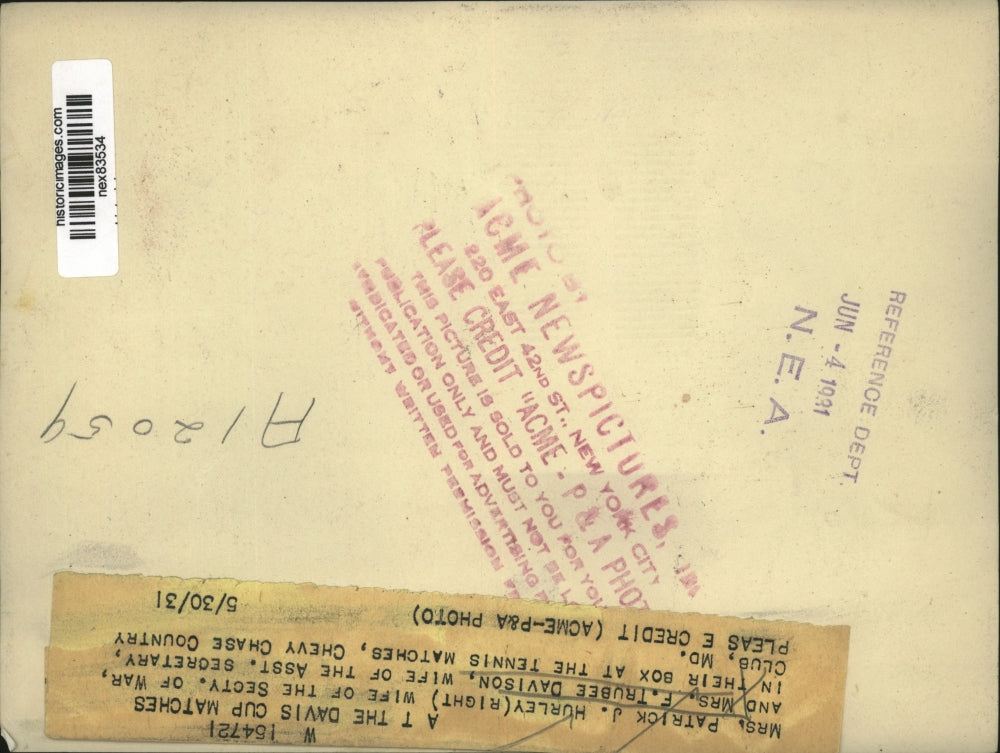 historicimages.com
nex83534
PHOTO BY
ACME NEWSPICTURES,
220 EAST 42ND ST., NEW YORK CITY
PLEASE CREDIT "ACME - P & A PHOTO
THIS PICTURE IS SOLD TO YOU FOR YOU
PUBLICATION ONLY AND MUST NOT BE
SYNDICATED OR USED FOR ADVERTISING
WITHOUT WRITTEN PERMISSION
REFERENCE DEPT.
JUN - 4 1931
N. E. A.
A12059
W 154721
A T THE DAVIS CUP MATCHES
MRS. PATRICK J. HURLEY(RIGHT) WIFE OF THE SECTY. OF WAR,
AND MRS. F.TRUBEE DAVISON, WIFE OF THE ASST. SECRETARY,
IN THEIR BOX AT THE TENNIS MATCHES, CHEVY CHASE COUNTRY
CLUB, MD.
PLEAS E CREDIT (ACME-P&A PHOTO) 5/30/31